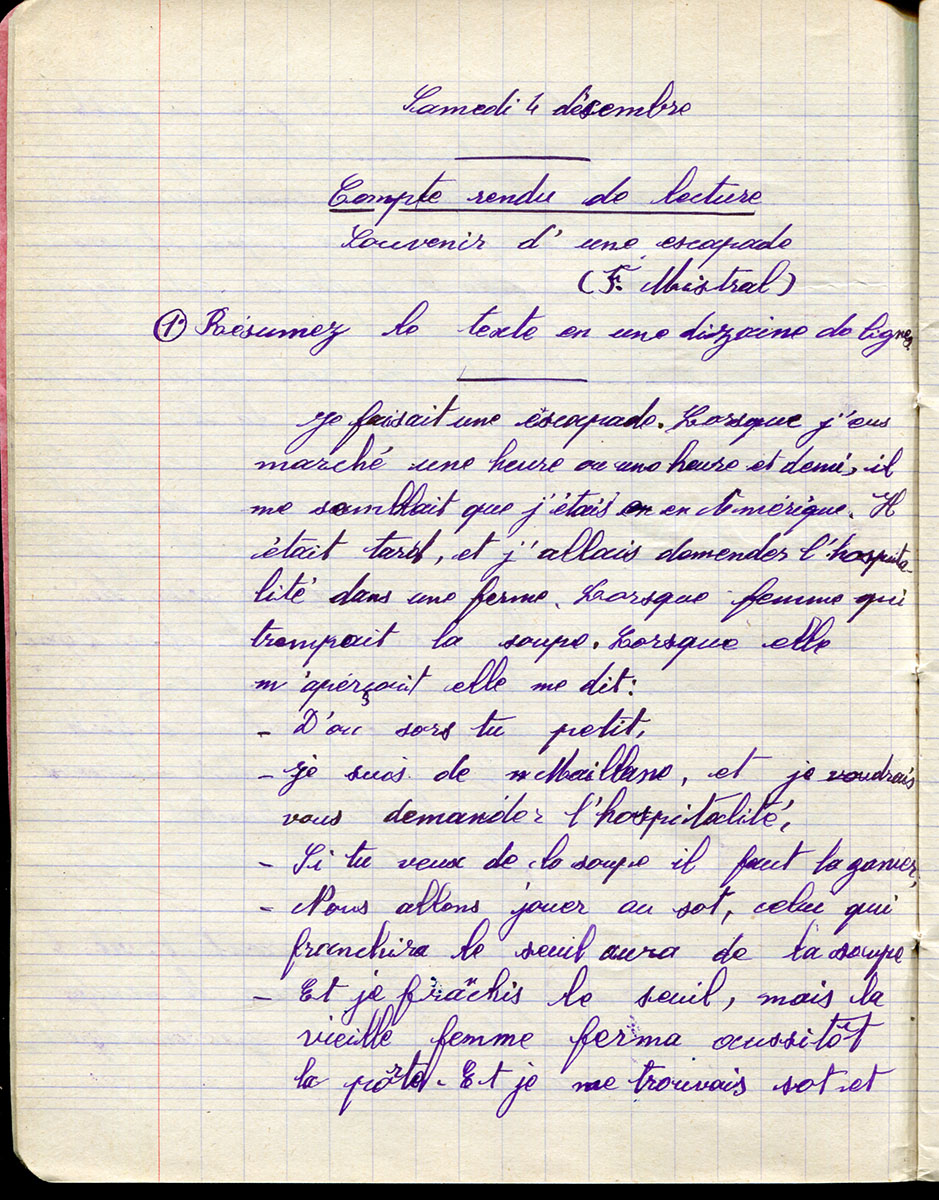 Samedi 4 décembre
Compte rendu de lecture
Souvenir d'une escapade
(F. Mistral)
1° Résumez le texte en une dizaine de lignes.
Je faisait une escapade. Lorsque j'eus
marché une heure ou une heure et demi, il
me semblait que j'étais en en Amérique. Il
était tard, et j'allais demender l'hospita-
lité dans une ferme. Lorsque femme qui
trempait la soupe. Lorsque elle
m'aperçoit elle me dit:
- D'ou sors tu petit,
- Je suis de Maillane, et je voudrais
vous demander l'hospitalité,
- Si tu veux de la soupe il faut la ganier,
- Nous allons jouer au sot, celui qui
franchira le seuil aura de la soupe
- Et je frachis le seuil, mais la
vieille femme ferma aussitôt
la porte. Et je me trouvais sot et